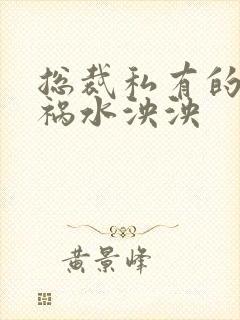 总裁私有的
祸水泱泱
黄景峰